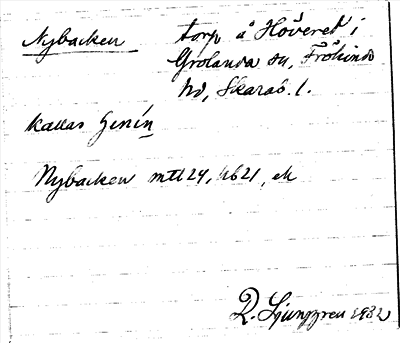 Nybacken torp å Höveret i
Grolanda sn, Frökinds
hd, Skarab. l.
kallas Genín
Nybacken mtl 24, hb 21, ek
R. Ljunggren 1932